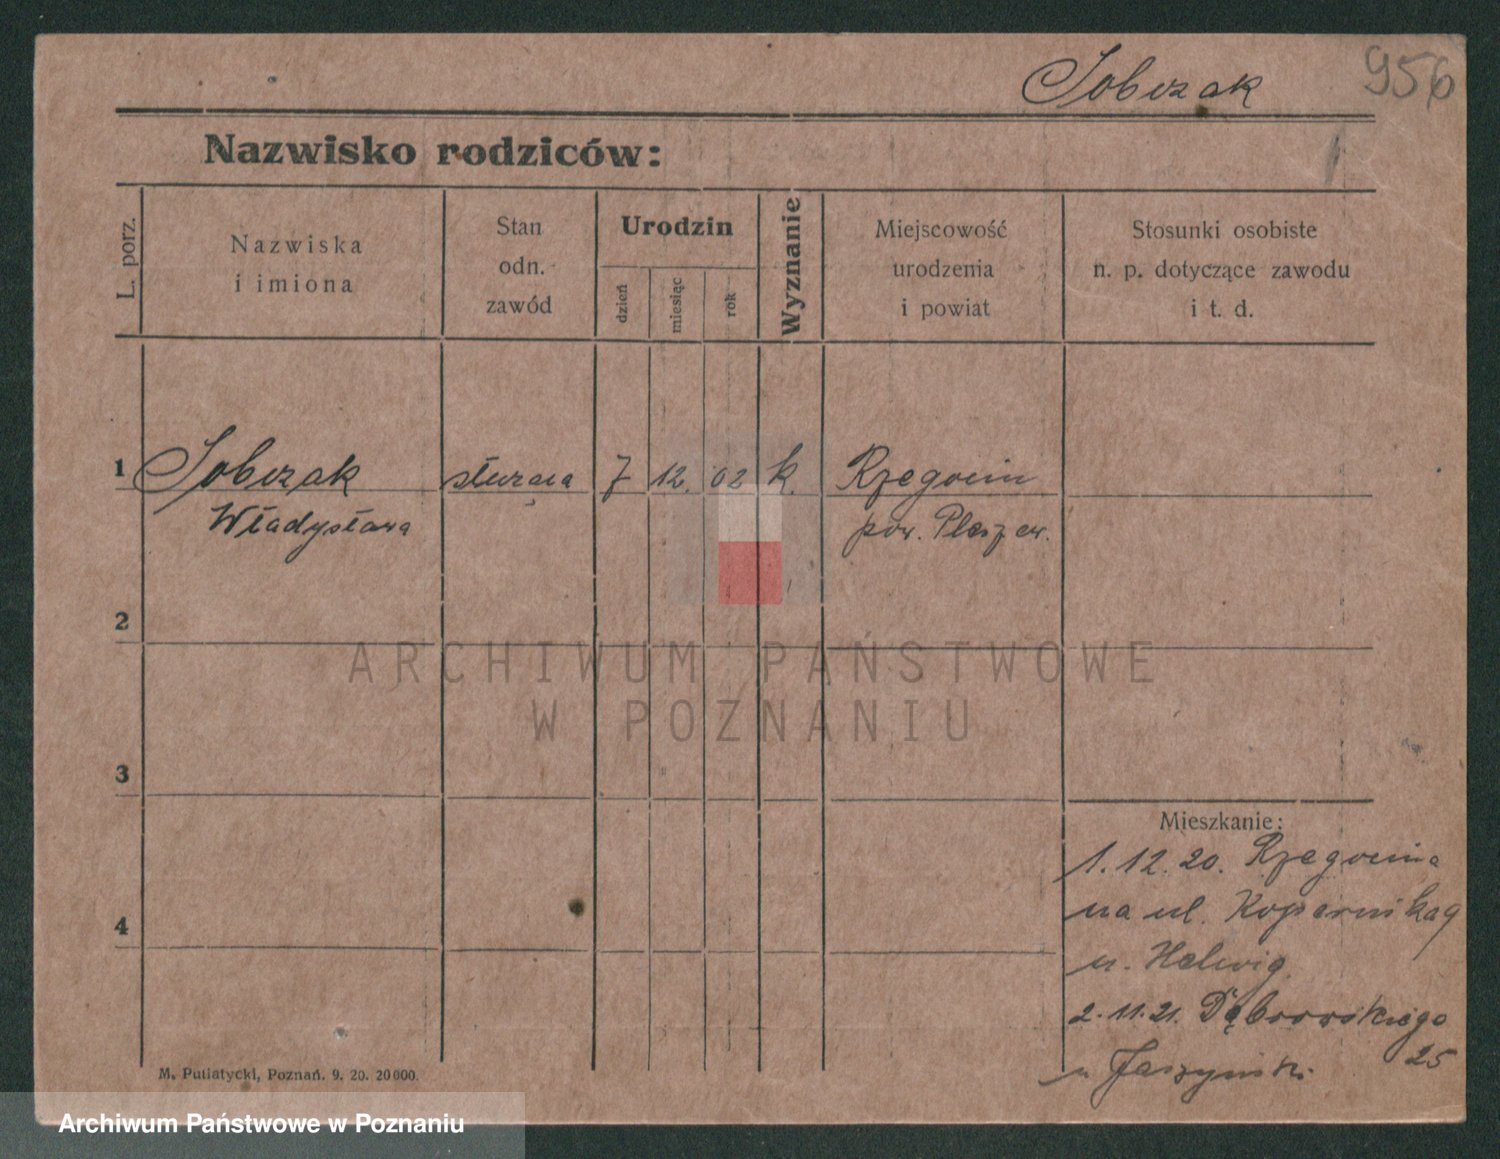 Sobczak 956
Nazwisko rodziców:
L. porz.
Nazwiska
i imiona
Stan
odn.
zawód
Urodzin
dzień
miesiąc
rok
Wyznanie
Miejscowość
urodzenia
i powiat
Stosunki osobiste
n. p. dotyczące zawodu
i t. d.
1 Sobczak służąca 7 12. 02 k. Rzegocin
Władysława pow. Pleszew.
2
3
4
Mieszkanie:
1.12.20. Rzegocina
na ul. Kopernika 9
u. Helwig
2.11.21. Dąbrowskiego
25
u Jaszyński
M. Putiatycki, Poznań. 9. 20. 20000.
ARCHIWUM PAŃSTWOWE
W POZNANIU
Archiwum Państwowe w Poznaniu